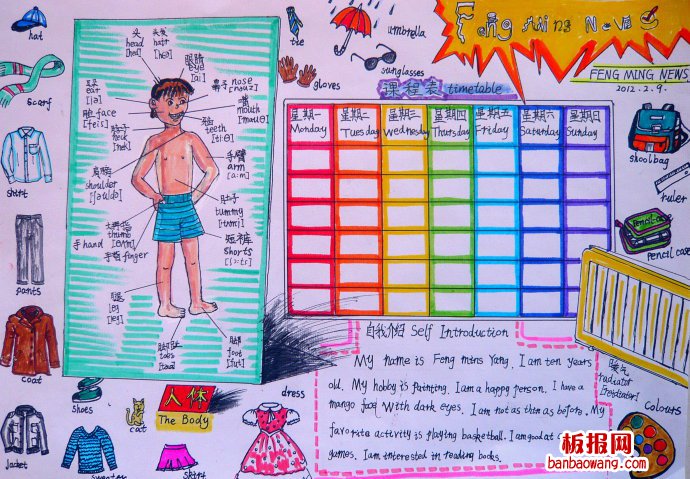 hat
Scarf
shirt
pants
coat
shoes
jacket
sweater
cat
skirt
dress
头
head
[hed]
头发
hair
眼睛
eye
[ai]
鼻子 nose
耳朵
ear
[iə]
嘴
mouth
脸 face
[feis]
teeth
neck
[nek]
手臂
arm
[a:m]
肩膀
shoulder
肚子
tummy
thumb
手 hand
手指 finger
短裤
shorts
[ʃɔ:ts]
腿
leg
[leg]
脚趾
toes
脚
foot
[fut]
人体
The Body
tie
umbrella
sunglasses
gloves
Feng ming News
FENG MING NEWS
2012.2.9.
课程表 timetable
星期一 星期二 星期三 星期四 星期五 星期六 星期日
Monday Tuesday Wednesday Thursday Friday Saturday Sunday
shoolbag
ruler
pencil case
暖气
radiator
Colours
自我介绍 Self Introduction
My name is Feng ming Yang. I am ten years
old. My hobby is painting. I am a happy person. I have a
mango face with dark eyes. I am not as thin as before. My
favorate activity is playing basketball. I am good at
games. I am interested in reading books.
板报网
banbaowang.com